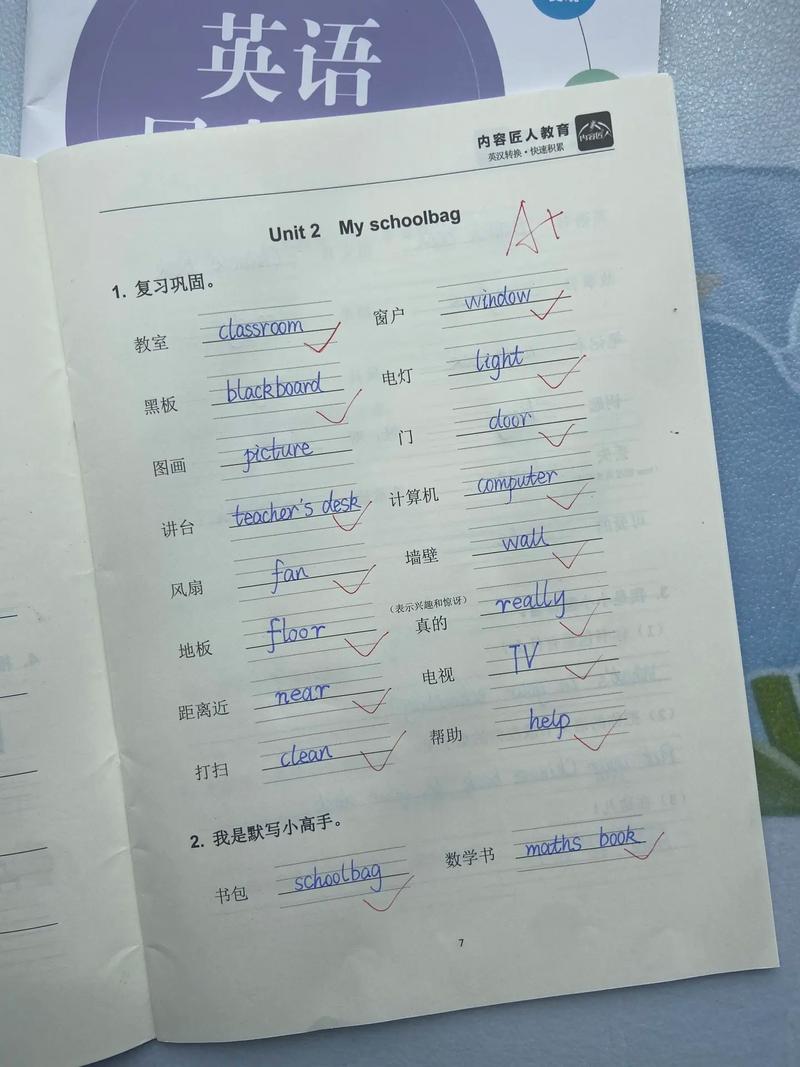 英语
内容匠人教育
内容匠人
英汉转换·快速积累
Unit 2 My schoolbag
A+
1. 复习巩固。
教室 classroom 窗户 window
黑板 blackboard 电灯 light
图画 picture 门 door
讲台 teacher's desk 计算机 computer
风扇 fan 墙壁 wall
地板 floor (表示兴趣和惊讶) 真的 really
距离近 near 电视 TV
打扫 clean 帮助 help
2. 我是默写小高手。
书包 schoolbag 数学书 maths book
7